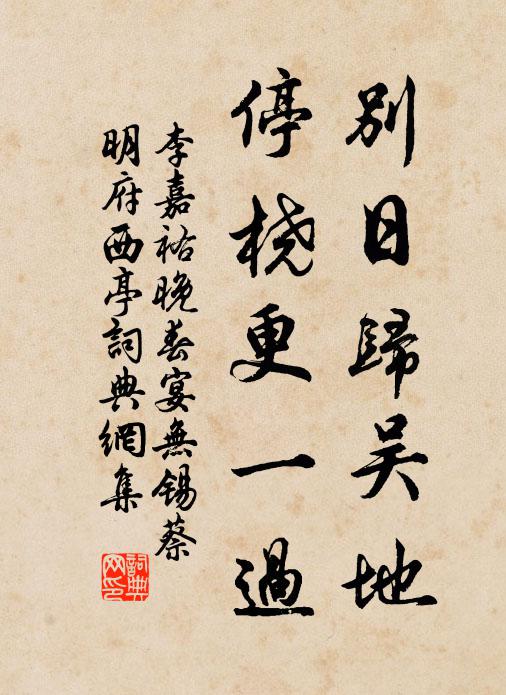 別日歸吴地
停橈更一過
李嘉祐晚春宴無錫蔡
明府西亭詞典網集
詞典
网印